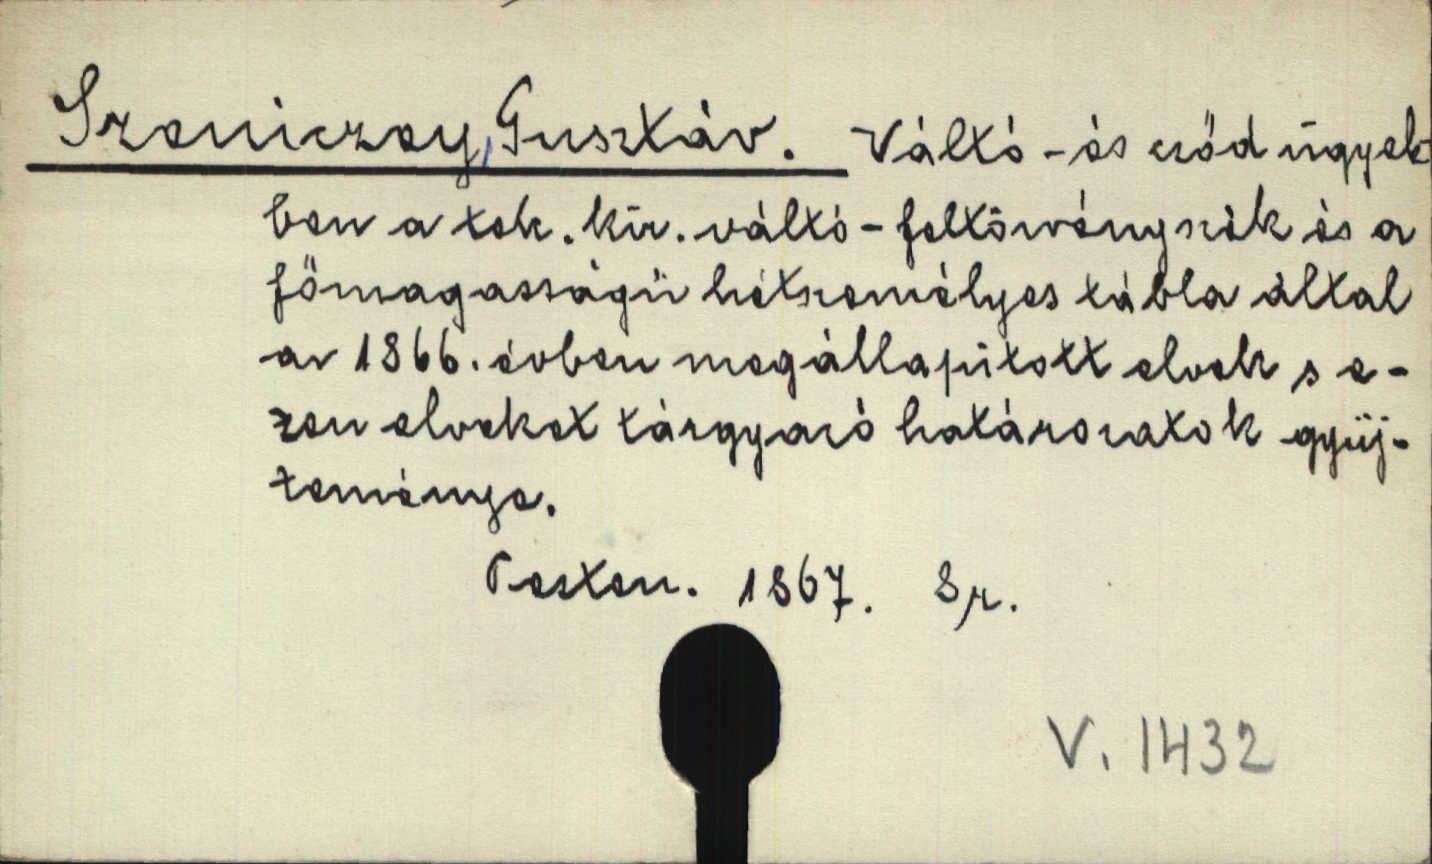 Szeniczey, Gusztáv. Váltó- és csőd ügyek-
ben a tek. kir. váltó-feltörvényszék és a
főmagasságú hétszemélyes tábla által
az 1866. évben megállapított elvek s e-
zen elveket tárgyazó határozatok gyűj-
teménye.
Pesten. 1867. 8r.
V. 1432